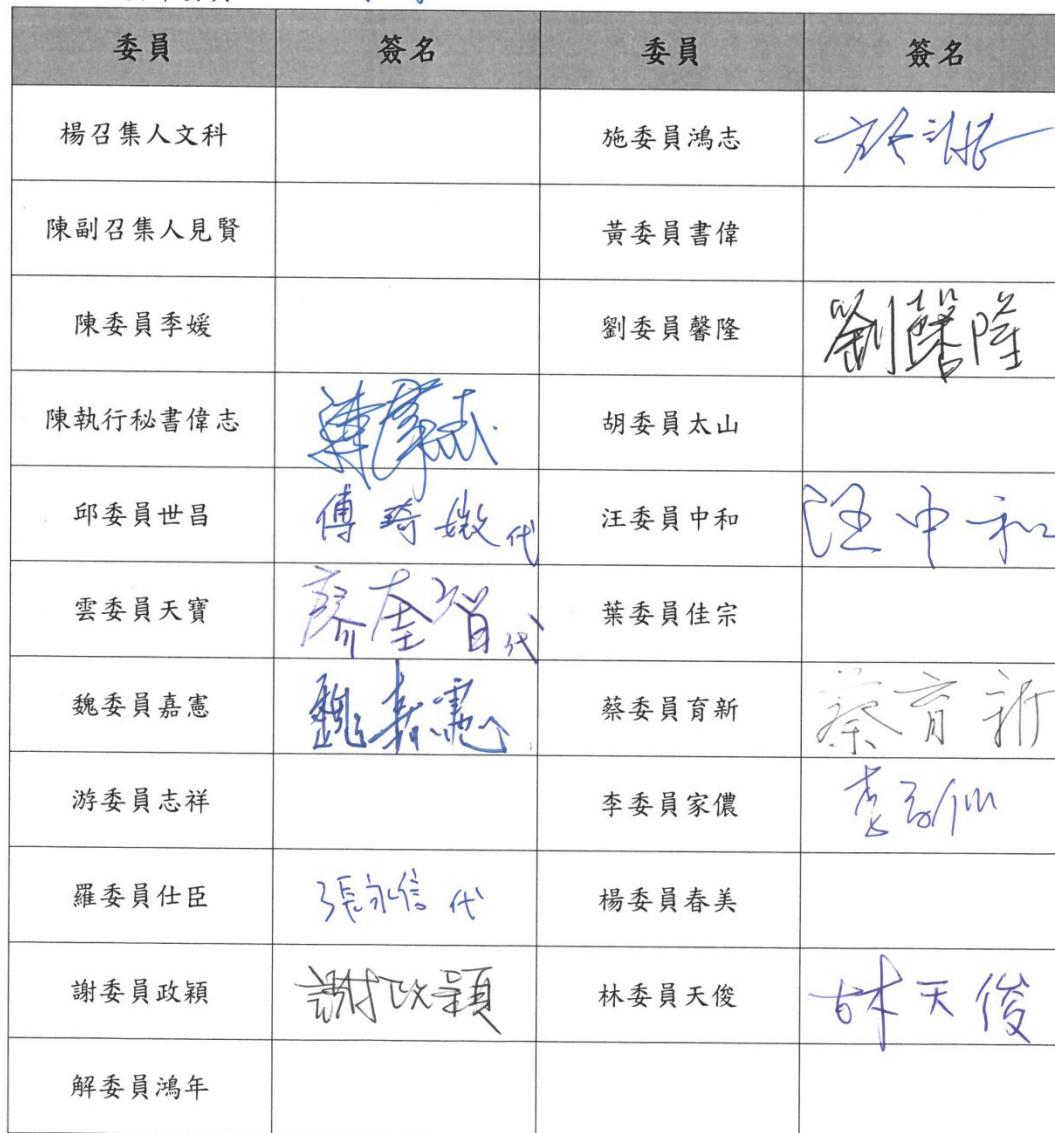 委員 簽名 委員 簽名
楊召集人文科 施委員鴻志
陳副召集人見賢 黃委員書偉
陳委員季媛 劉委員馨隆 劉馨隆
陳執行秘書偉志 陳偉志 胡委員太山
邱委員世昌 傅琦媺代 汪委員中和 汪中和
雲委員天寶 廖奎智代 葉委員佳宗
魏委員嘉憲 魏嘉憲 蔡委員育新 蔡育新
游委員志祥 李委員家儂
羅委員仕臣 張永信代 楊委員春美
謝委員政穎 謝政穎 林委員天俊 林天俊
解委員鴻年